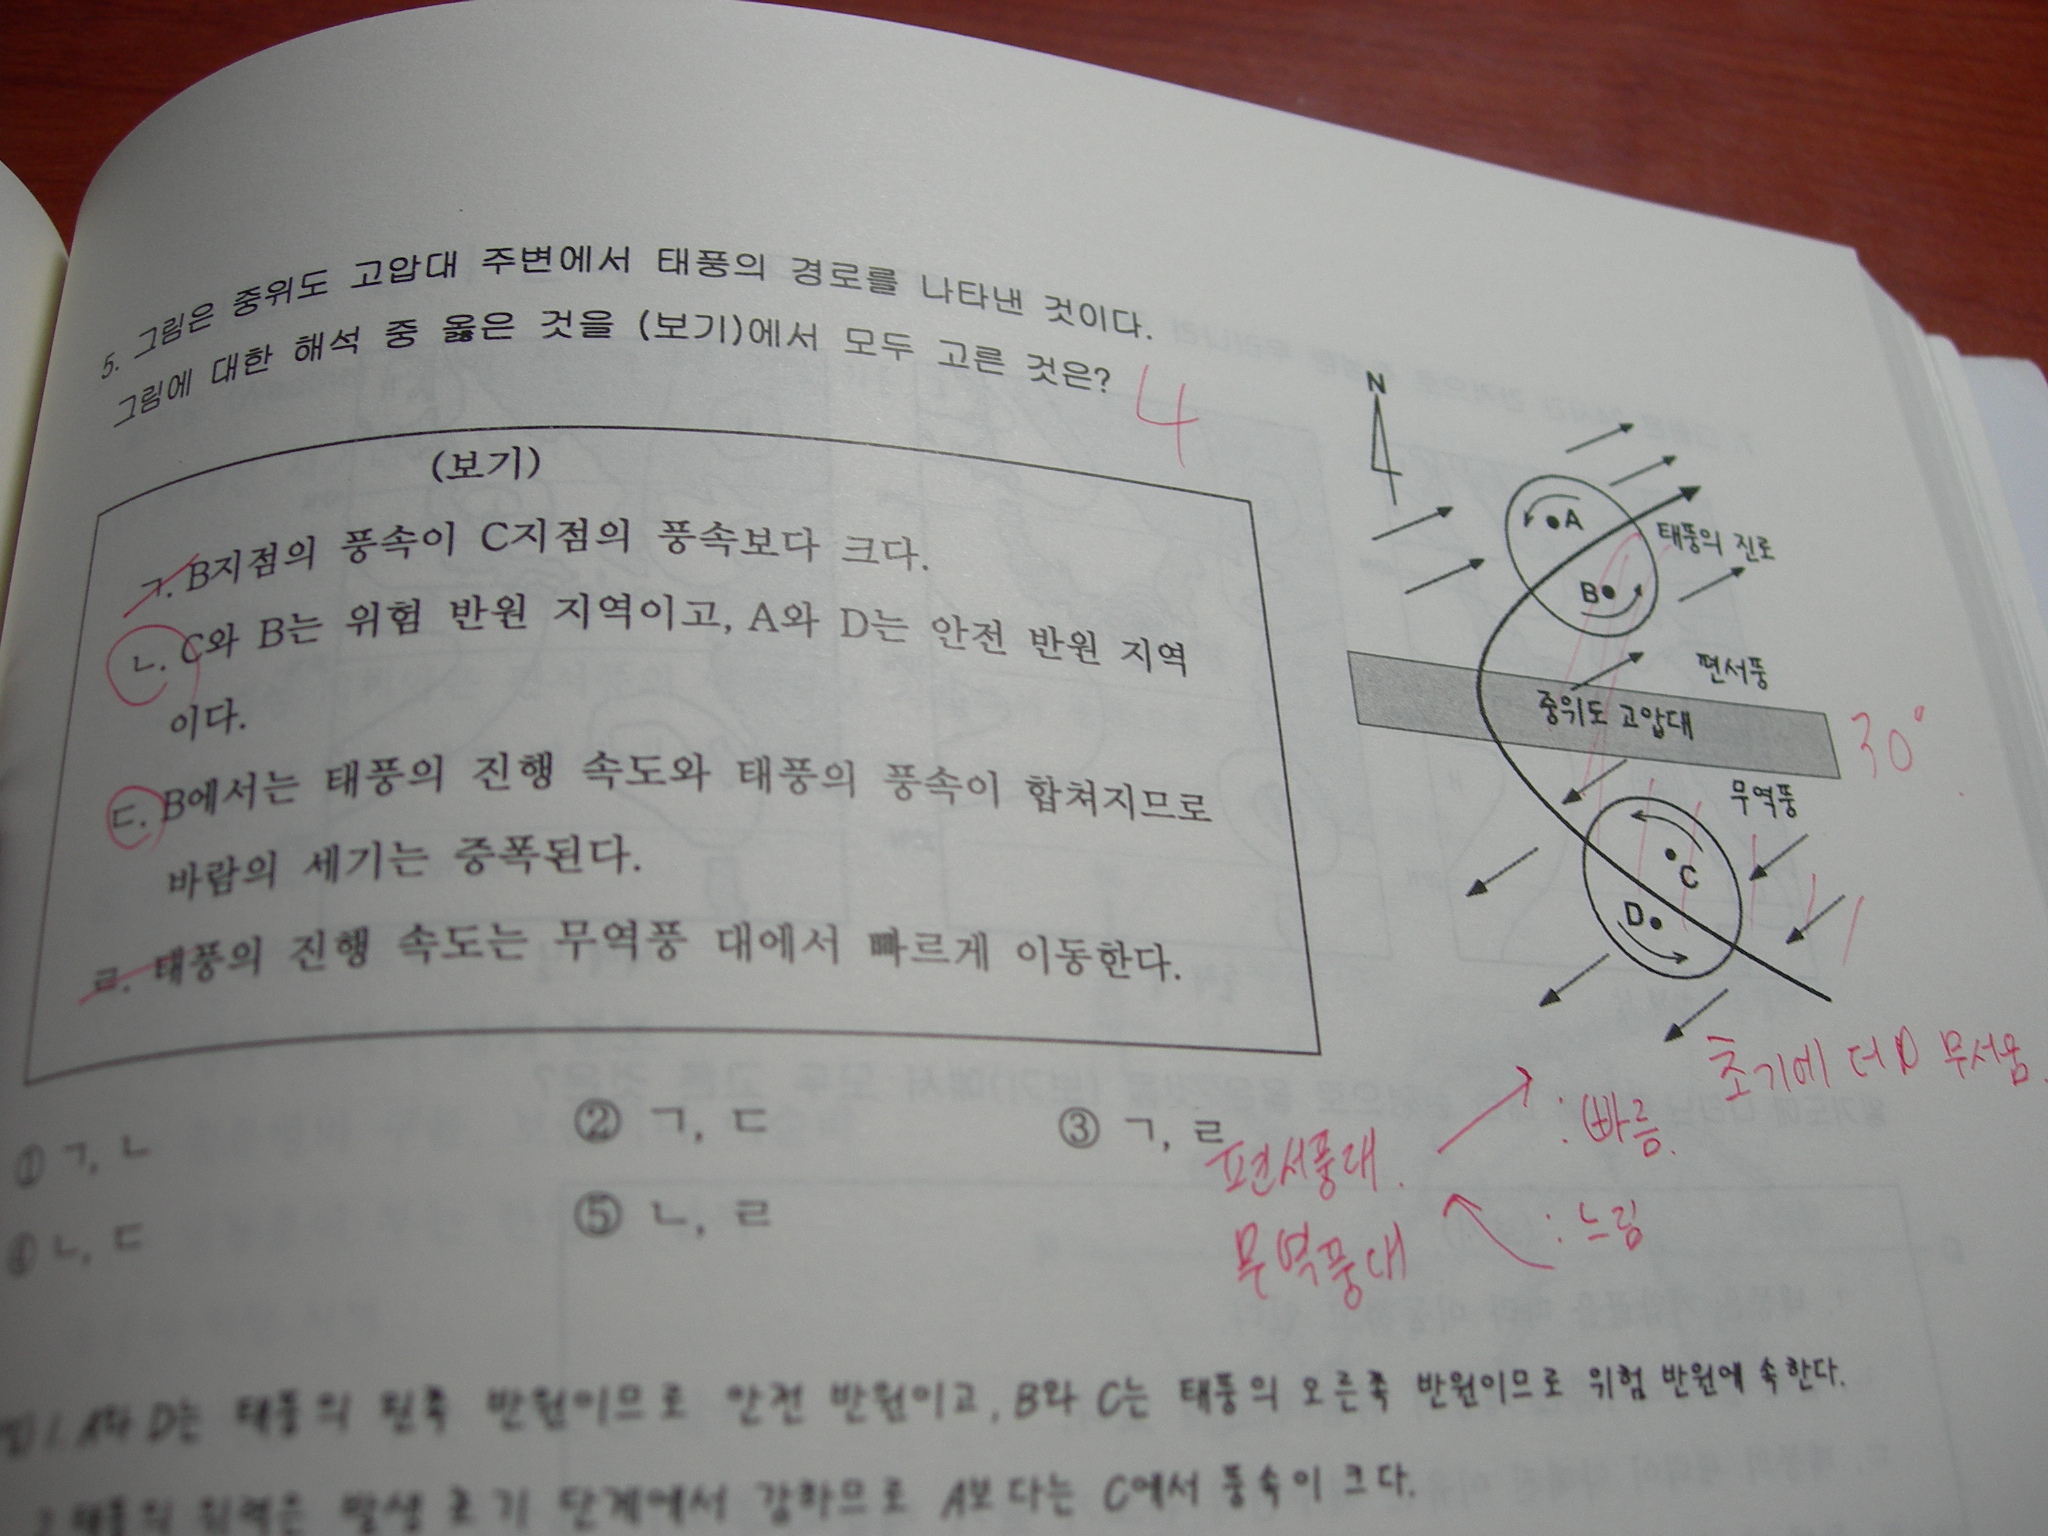 5. 그림은 중위도 고압대 주변에서 태풍의 경로를 나타낸 것이다.
그림에 대한 해석 중 옳은 것을 (보기)에서 모두 고른 것은?
4
(보기)
ㄱ. B지점의 풍속이 C지점의 풍속보다 크다.
ㄴ. C와 B는 위험 반원 지역이고, A와 D는 안전 반원 지역
이다.
ㄷ. B에서는 태풍의 진행 속도와 태풍의 풍속이 합쳐지므로
바람의 세기는 증폭된다.
ㄹ. 태풍의 진행 속도는 무역풍 대에서 빠르게 이동한다.
N
A
태풍의 진로
B
편서풍
중위도 고압대
30°
무역풍
C
D
초기에 더 무서움.
① ㄱ, ㄴ
② ㄱ, ㄷ
③ ㄱ, ㄹ
④ ㄴ, ㄷ
⑤ ㄴ, ㄹ
편서풍대. : 빠름.
무역풍대 : 느림
1. A와 D는 태풍의 왼쪽 반원이므로 안전 반원이고, B와 C는 태풍의 오른쪽 반원이므로 위험 반원에 속한다.
2. 태풍의 위력은 발생 초기 단계에서 강하므로 A보다는 C에서 풍속이 크다.